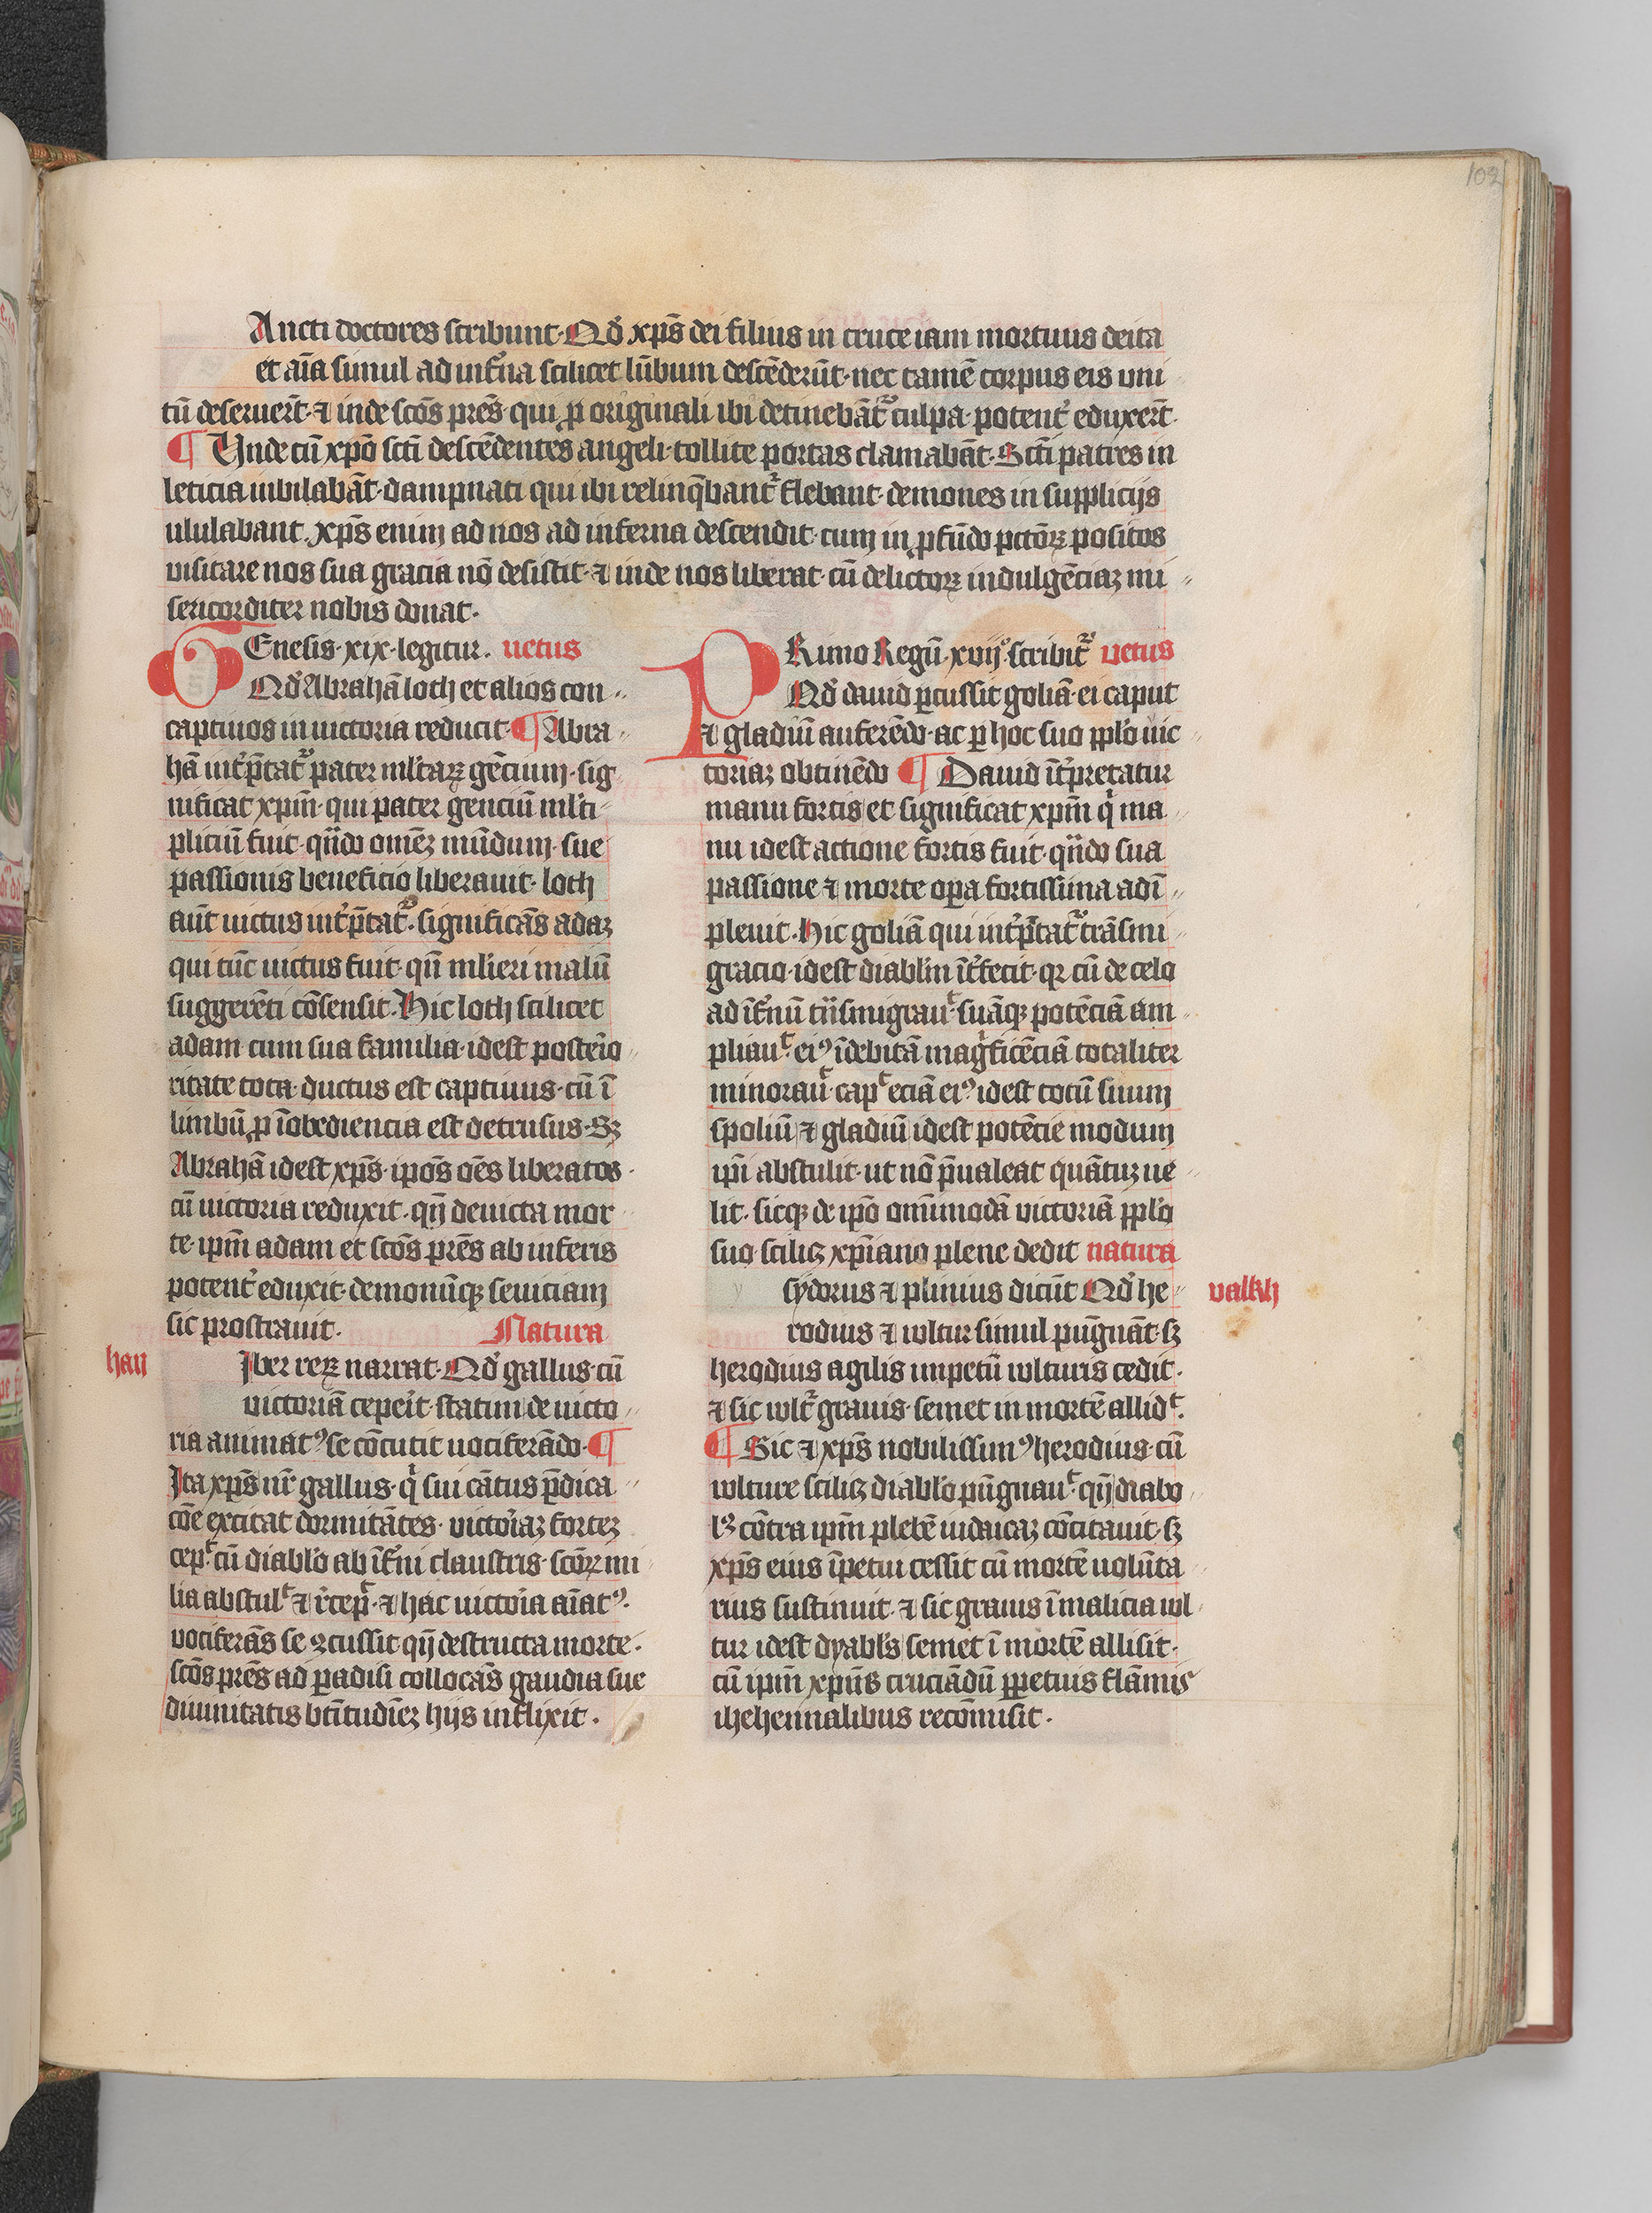 102
Ancti doctores scribunt · Qď xp̄s dei filius in cruce iam mortuus deita
et aīa simul ad inf̄na scilicet lūbum descēderūt · nec tamē corpus eis uni
tū deseruerūt · ⁊ inde scōs pr̄es · qui ꝓ originali ibi detinebāt̄ culpa · potent̄ eduxer̄t ·
¶ Unde cū xp̄o sc̄ti descēdentes angeli · tollite portas clamabāt · Sc̄ti patres in
leticia iubilabāt · dampnati qui ibi relinq̄bant̄ flebant · demones in supplicijs
ululabant · xp̄s enim ad nos ad inferna descendit · cum in ꝓfūdo pctōꝝ positos
visitare nos sua gracia nō desistit · ⁊ inde nos liberat · cū delictoꝝ indulgēciaꝫ mi
sericorditer nobis donat ·
GEnesis · xix · legitur · uetus
Qď Abrahā loth et alios con
captiuos in uictoria reducit · ¶ Abra
hā int̄p̄tat̄ pater ml̄taꝝ gēcium · sig
nificat xp̄m · qui pater genciū ml̄ti
pliciū fuit · qn̄do omēꝫ mūdum · sue
passionis beneficio liberauit · loth
aūt uictus int̄p̄tat̄ · significās adaꝫ
qui tūc uictus fuit · qn̄ ml̄ieri malū
suggerēti cōsensit · Hic loth scilicet
adam cum sua familia · idest posterio
ritate tota · ductus est captiuus · cū ī
limbū ꝓ īobediencia est detrusus · Sꝫ
Abrahā idest xp̄s · ip̄os oēs liberatos ·
cū uictoria reduxit · qn̄ deuicta mor
te · ip̄m adam et scōs pr̄es ab inferis
potent̄ eduxit · demonūqꝫ seuiciam
sic prostrauit · Natura
han
Iber reꝝ narrat · Qď gallus · cū
uictoriā ceper̄it · statim de uicto
ria animatꝰ se cōcutit uociferādo · ¶
Ita xp̄s nr̄ gallus · q̇ sui cātus p̄dica
cōe excitat dormitātes · victor̄iaꝫ forteꝫ
cepͭ · cū diabl̄o ab īf̄ni claustris · scōꝝ mi
lia abstulͭ ⁊ r̄cepͭ · ⁊ hac uictor̄ia aīatꝰ ·
vociferās se ꝯcussit qn̄ destructa morte ·
scōs pr̄es ad ꝑadisi collocās gaudia sue
diuinitatis bt̄itudīeꝫ hijs inflixit ·
PRimo Regū · xvij° · scribit̄ uetus
Qď dauid ꝑcussit goliā · ei caput
⁊ gladiū auferēdo · ac ꝑ hoc suo ppl̄o uic
toriaꝫ obtinēdo ¶ Dauid īt̄pretatur
manu fortis et significat xp̄m q̇ ma
nu idest actione fortis fuit · qn̄do sua
passione ⁊ morte oꝑa fortissima adī
pleuit · Hic goliā qui int̄p̄tat̄ trāsmi
gracio · idest diabl̄m īt̄fecit · qꝛ cū de celo
ad īf̄nū trāsmigrauͭ · suāqꝫ potēciā am
pliauͭ · eiꝰ īdebitā mag̓ficēciā totaliter
minorauͭ · capͭ eciā eiꝰ · idest totū suum
spoliū ⁊ gladiū idest potēcie modum
ip̄i abstulit · ut nō p̄ualeat quātuꝫ ue
lit · sicqꝫ de ip̄o omīmodā victoriā ppl̄o
suo · sciliꝫ xp̄iano plene dedit natura
sydorus ⁊ plinius dicūt Qď he
valkh
rodius ⁊ vultur simul pūgnāt · sꝫ
herodius agilis impetū vulturis cedit ·
⁊ sic vult̄ grauis · semet in mortē allidͭ ·
¶ Sic ⁊ xp̄s nobilissimꝰ herodius · cū
vulture sciliꝫ diabl̄o pūgnauͭ · qn̄ diabo
lꝰ cōtra ip̄m plebē iudaicaꝫ cōcitauit · sꝫ
xp̄s eius īpetui cessit cū mortē uolūta
rius sustinuit · ⁊ sic grauis ī malicia vul
tur idest dyabl̄s semet ī mortē allisit ·
cū ip̄m xp̄us cruciādū ꝑpetuis flāmis
ihehennalibus recōmisit ·